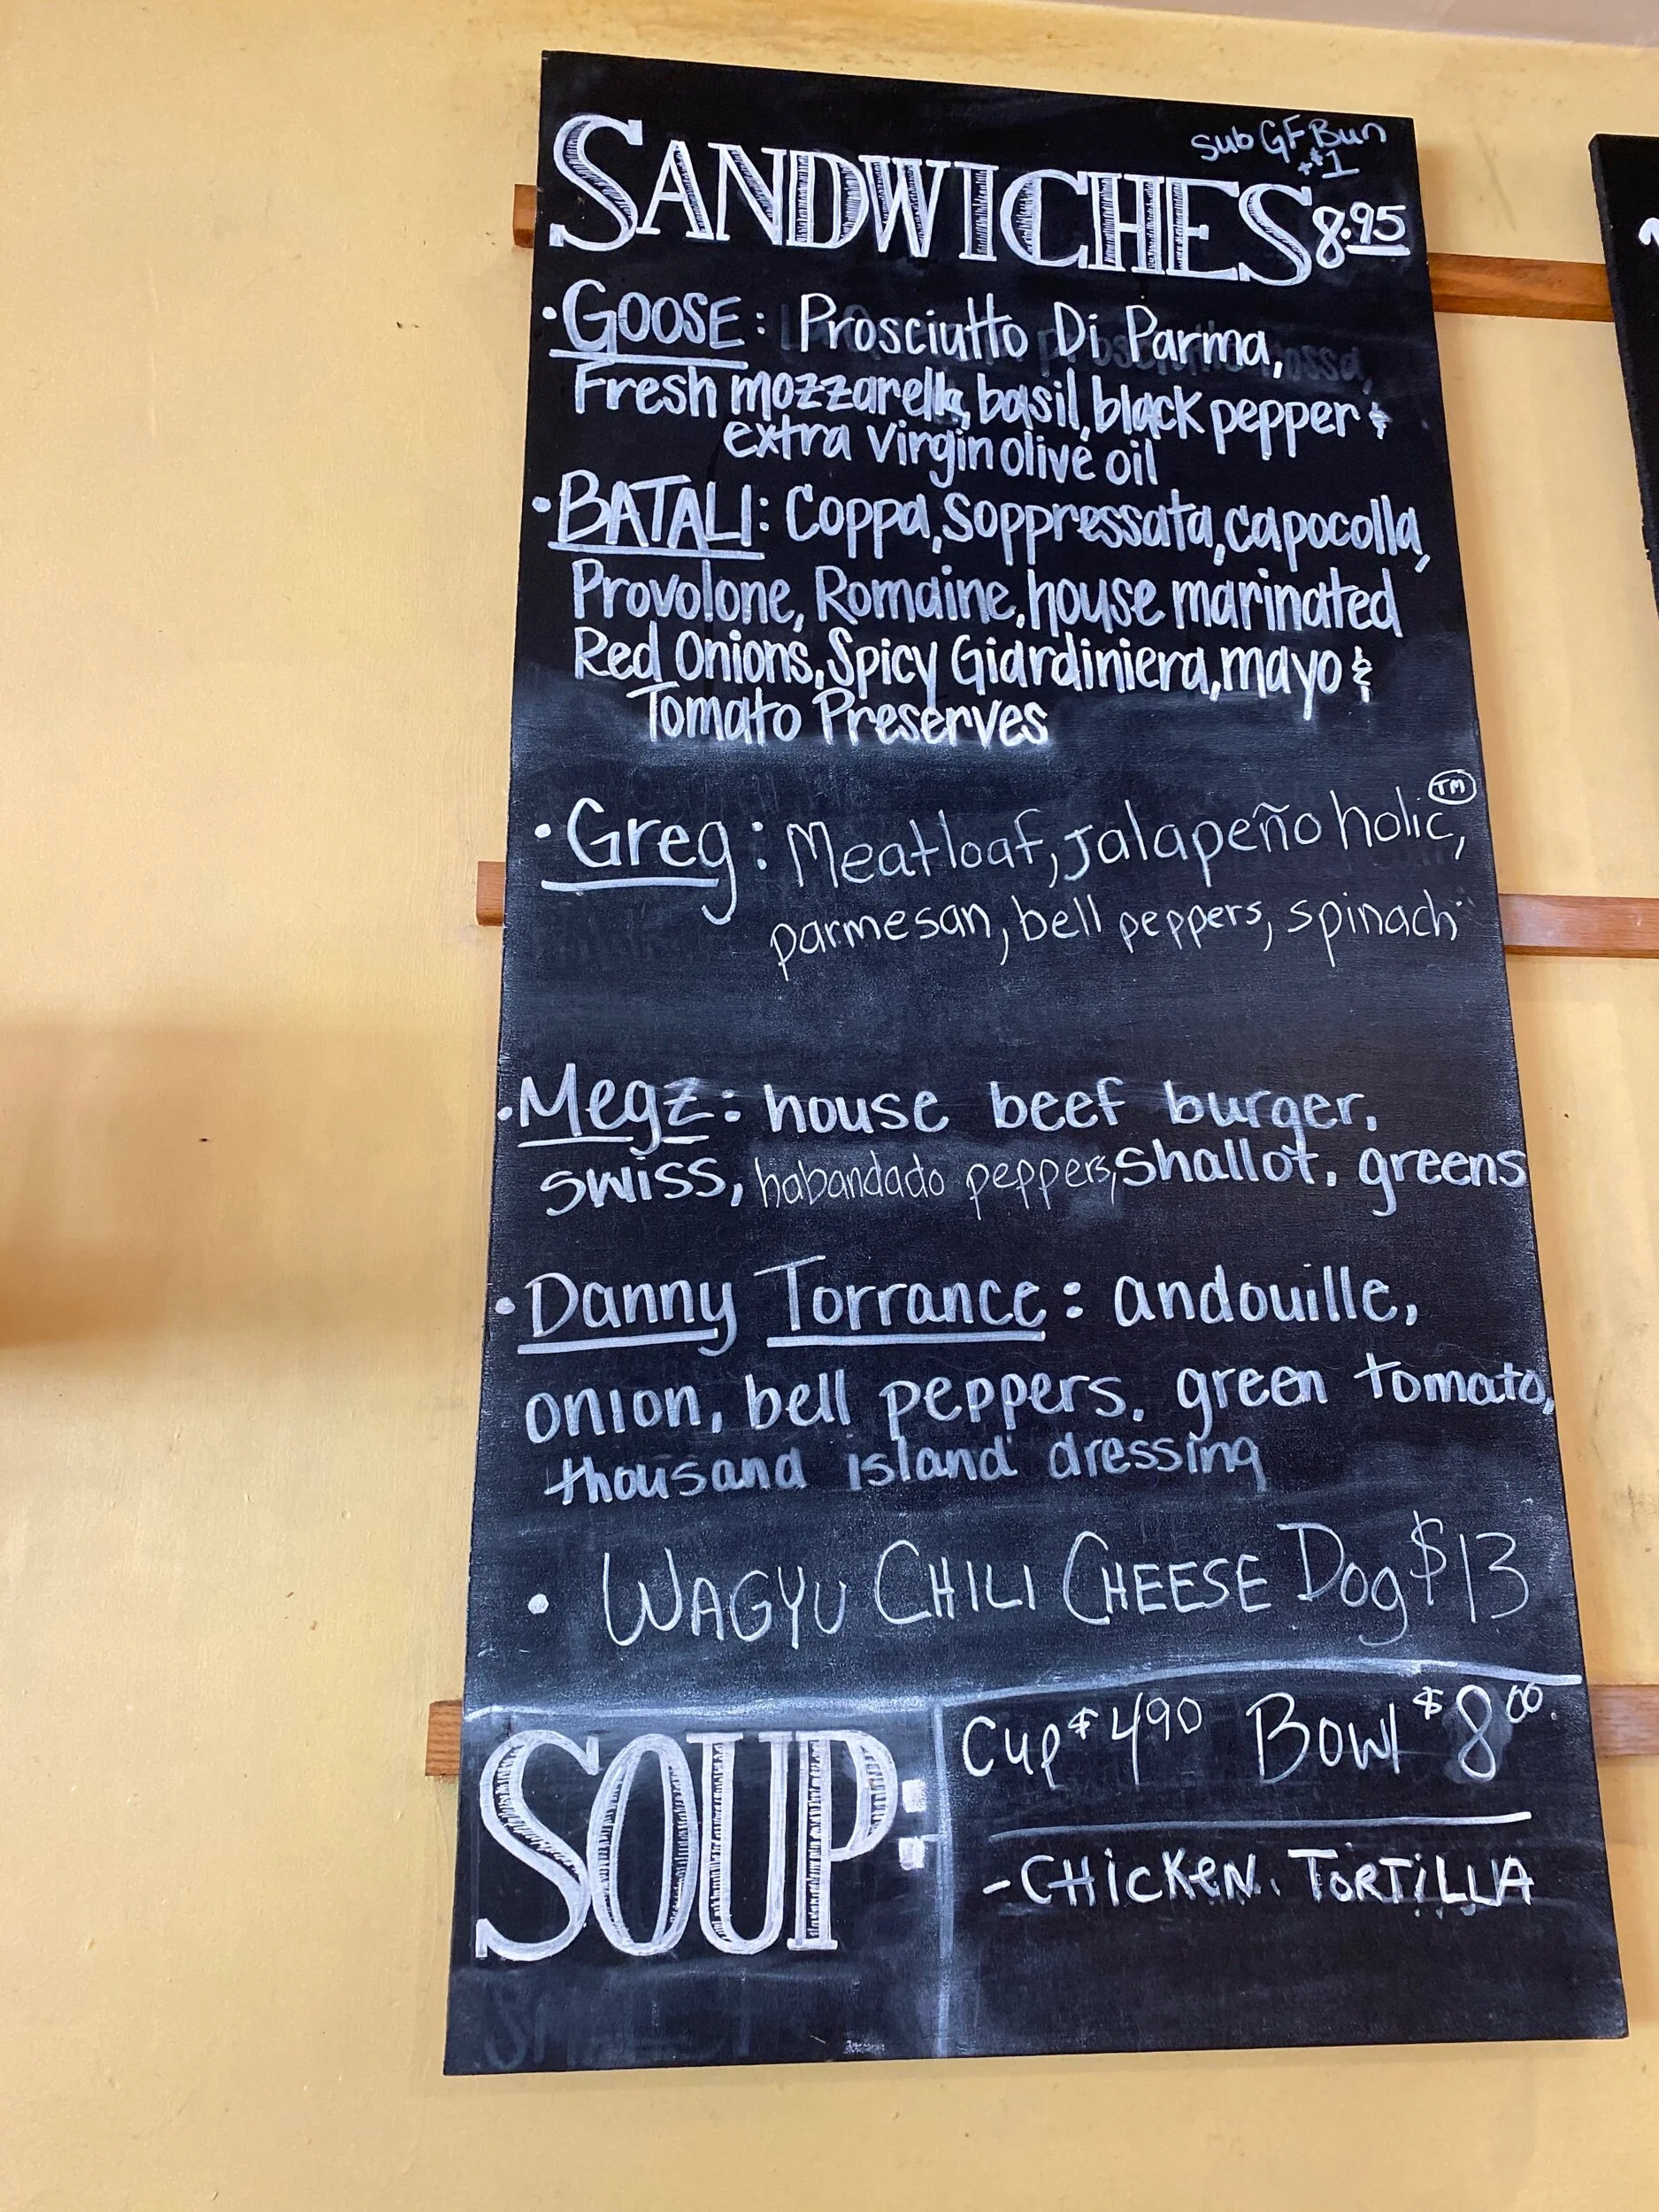 sub GF Bun
+$1
SANDWICHES 8.95
• GOOSE: Prosciutto Di Parma,
Fresh mozzarella, basil, black pepper &
extra virgin olive oil
• BATALI: Coppa, Soppressata, capocolla,
Provolone, Romaine, house marinated
Red Onions, Spicy Giardiniera, mayo &
Tomato Preserves
• Greg: Meatloaf, Jalapeño holic™,
parmesan, bell peppers, spinach
• Megz: house beef burger,
swiss, habandado peppers, shallot, greens
• Danny Torrance: andouille,
onion, bell peppers, green tomato,
thousand island dressing
• WAGYU CHILI CHEESE Dog $13
SOUP:
Cup $4.90 Bowl $8.00
- CHICKEN TORTILLA